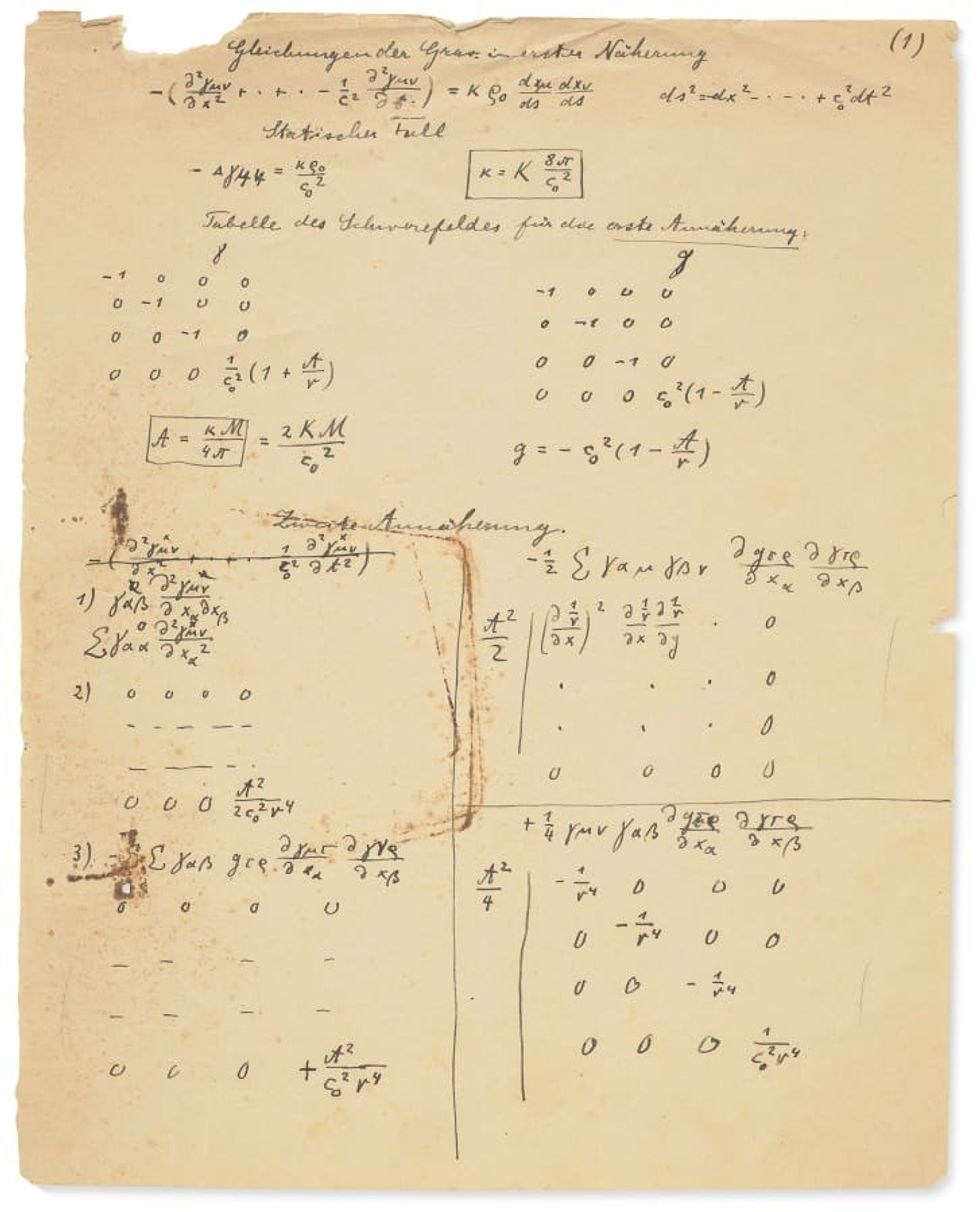 (1)
Gleichungen der Grav. in erster Näherung
−(∂²γμν/∂x² + · + · − 1/c² ∂²γμν/∂t²) = κ ρ₀ dxμ/ds dxν/ds   ds² = −dx² − · − · + c₀² dt²
Statischer Fall
− Δγ44 = κρ₀/c₀²   κ = K 8π/c₀²
Tabelle des Schwerefeldes für die erste Annäherung.
γ   g
−1 0 0 0   −1 0 0 0
0 −1 0 0   0 −1 0 0
0 0 −1 0   0 0 −1 0
0 0 0 1/c₀² (1 + A/r)   0 0 0 c₀² (1 − A/r)
A = κM/4π = 2KM/c₀²   g = − c₀² (1 − A/r)
Zweite Annäherung.
−(∂²γμν^x/∂x² + · + · 1/c₀² ∂²γμν^x/∂t²)
1) γαβ ∂²γμν/∂xα∂xβ
Σ γαα ∂²γμν/∂xα²
2) 0 0 0 0
− − − −
− − − −
0 0 0 A²/2c₀²r⁴
3) − Σ γαβ gτρ ∂γμτ/∂xα ∂γνρ/∂xβ
0 0 0 0
− − − −
− − − −
0 0 0 + A²/c₀²r⁴
−1/2 Σ γαμ γβν ∂gτρ/∂xα ∂γτρ/∂xβ
A²/2 | (∂(1/r)/∂x)² ∂(1/r)/∂x ∂(1/r)/∂y · 0
· · · 0
· · · 0
0 0 0 0
+ 1/4 γμν γαβ ∂gτρ/∂xα ∂γτρ/∂xβ
A²/4 | −1/r⁴ 0 0 0
0 −1/r⁴ 0 0
0 0 −1/r⁴
0 0 0 1/c₀²r⁴